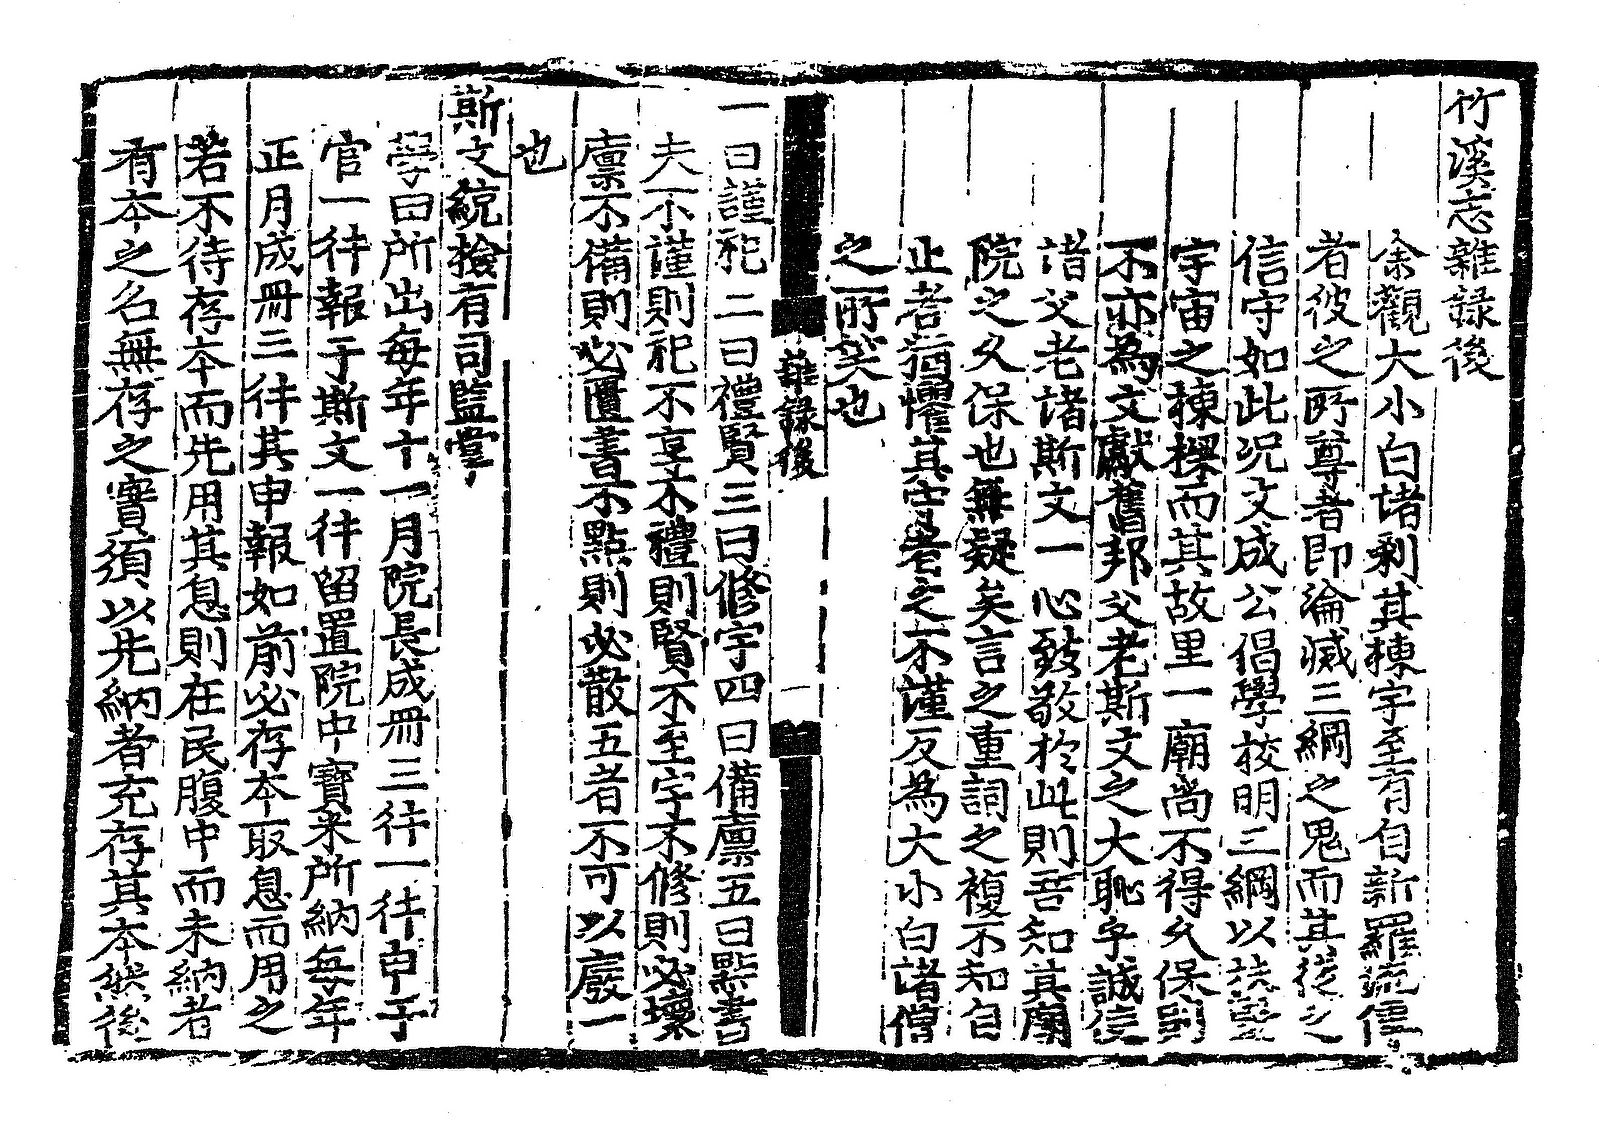 竹溪志雜録後
余觀大小白诸刹其棟宇至有自新羅流傳
者彼之所尊者卽淪滅三綱之鬼而其徒之
信守如此况文成公倡學校明三綱以扶竪
宇宙之棟樑而其故里一廟尚不得久保到
不亦為文獻舊邦父老斯文之大恥乎誠使
诸父老诸斯文一心致敬扵此則吾知其廟
院之久保也無疑矣言之重詞之複不知自
止者猶懼其守者之不謹反為大小白诸僧
之所笑也
雜録後
一
一曰謹祀二曰禮賢三曰修宇四曰備廩五曰點書
夫不謹則祀不享不禮則賢不至宇不修則必壞
廩不備則必匱書不點則必散五者不可以廢一
也
斯文統撿有司監掌
學曰所出每年十一月院長成冊三件一件申于
官一件報于斯文一件留置院中寶米所納每年
正月成冊三件其申報如前必存夲取息而用之
若不待存夲而先用其息則在民腹中而未納者
有夲之名無存之實須以先納者充存其夲然後